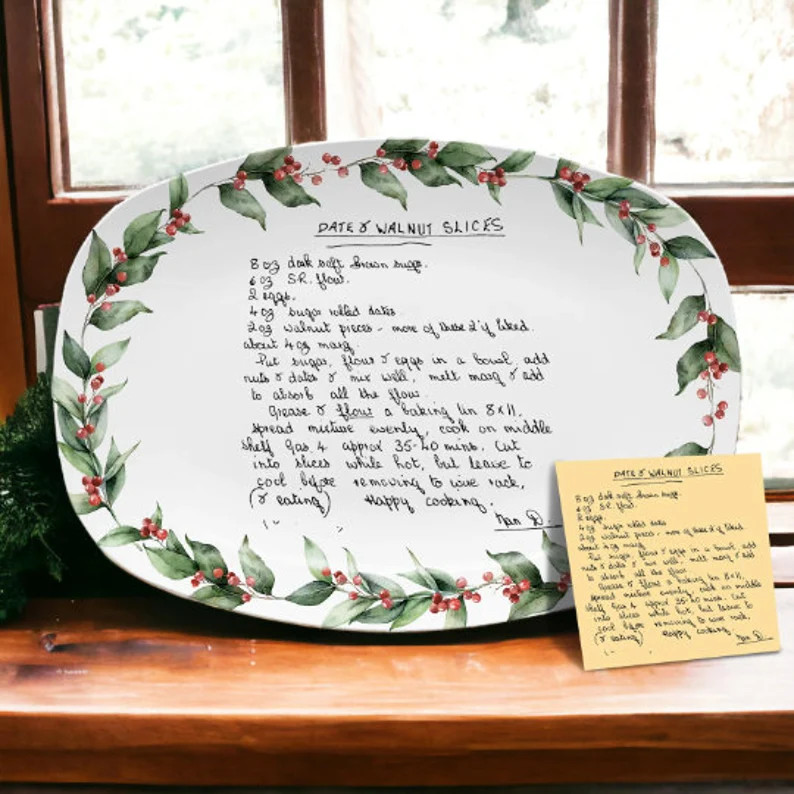 DATE & WALNUT SLICES
8 oz dark soft brown sugar.
6 oz S.R. flour.
2 eggs.
4 oz sugar rolled dates
2 oz walnut pieces - more of these 2 if liked.
about 4 oz marg.
Put sugar, flour & eggs in a bowl, add
nuts & dates & mix well, melt marg & add
to absorb all the flour.
Grease & flour a baking tin 8x11,
spread mixture evenly, cook on middle
shelf Gas 4 approx 35-40 mins. Cut
into slices while hot, but leave to
cool before removing to wire rack,
(& eating) Happy cooking.
Nan D.
DATE & WALNUT SLICES
8 oz dark soft brown sugar.
6 oz S.R. flour.
2 eggs.
4 oz sugar rolled dates
2 oz walnut pieces - more of these 2 if liked.
about 4 oz marg.
Put sugar, flour & eggs in a bowl, add
nuts & dates & mix well, melt marg & add
to absorb all the flour.
Grease & flour a baking tin 8x11,
spread mixture evenly, cook on middle
shelf Gas 4 approx 35-40 mins. Cut
into slices while hot, but leave to
cool before removing to wire rack,
(& eating) Happy cooking.
Nan D.